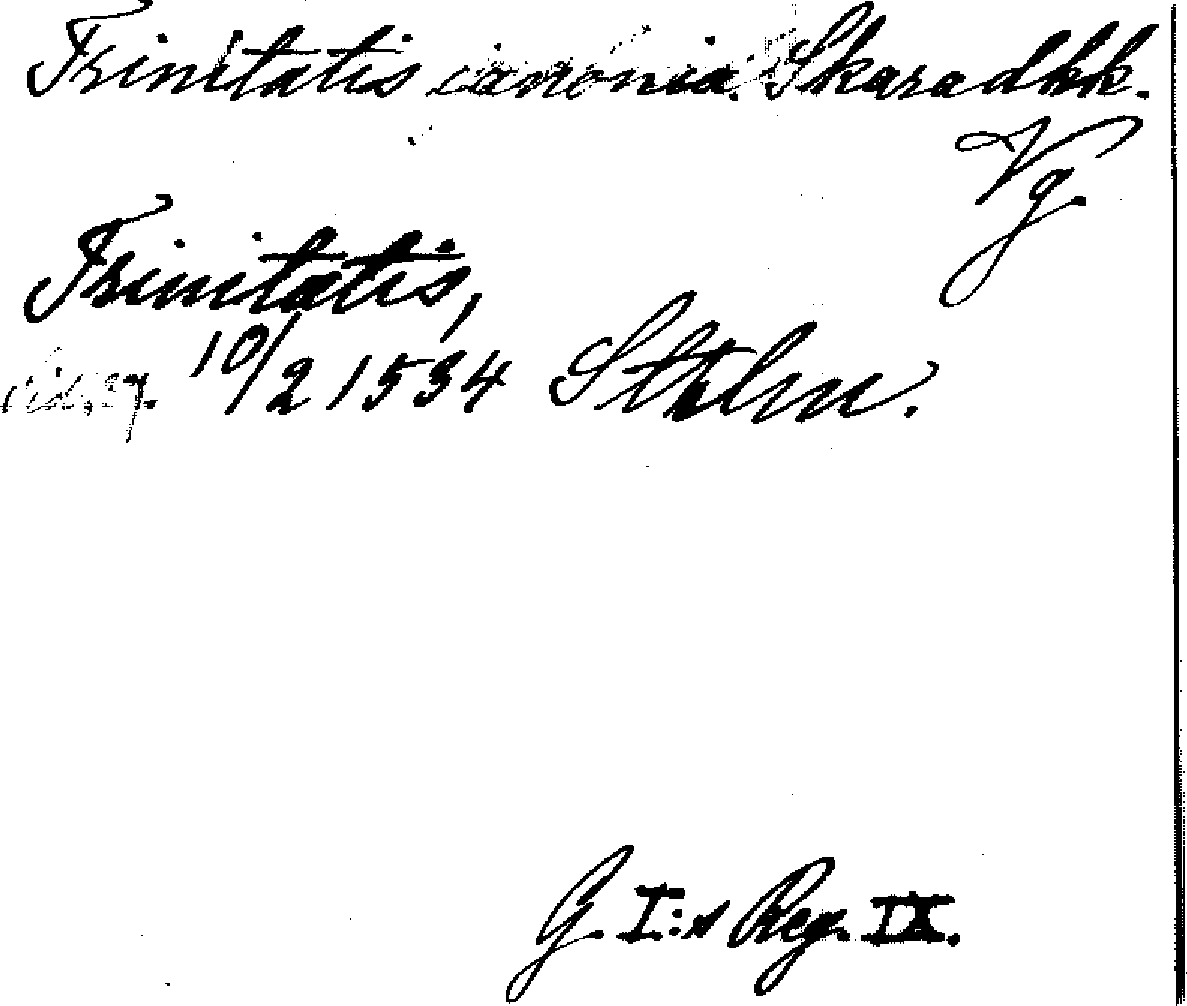 Trinitatis canonia. Skaradkk.
Vg.
Trinitatis,
sid. 27. 10/2 1534 Sthlm.
G. I:s Reg. IX.